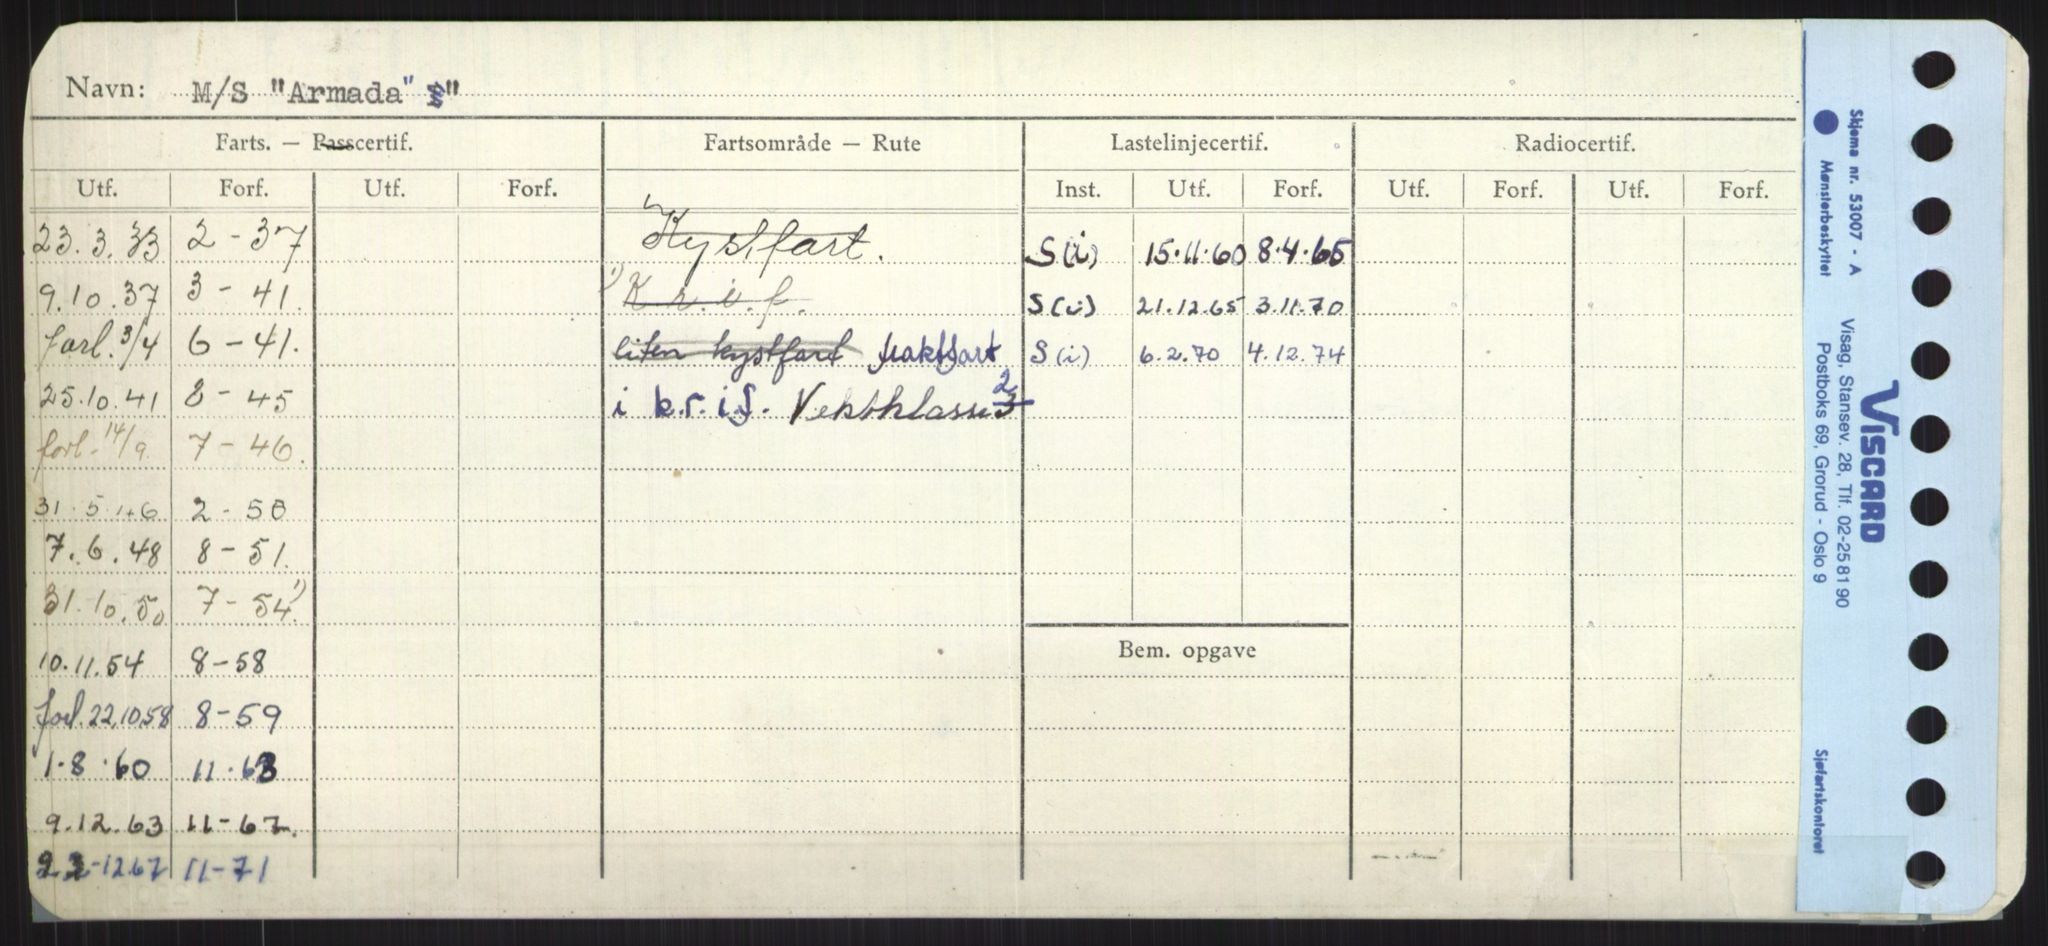 Navn: M/S "Armada" "
Farts. — Passcertif. Fartsområde — Rute Lastelinjecertif. Radiocertif.
Utf. Forf. Utf. Forf. Inst. Utf. Forf. Utf. Forf. Utf. Forf.
23.3.33 2-37 Kystfart. S(i) 15.11.60 8.4.65
9.10.37 3-41. 1) K.r.i.f. S(i) 21.12.65 3.11.70
forl. 3/4 6-41. liten kystfart fraktfart S(i) 6.2.70 4.12.74
25.10.41 8-45 i k.r.i.f. Vektklasse 3 2
forl. 14/9. 7-46.
31.5.46 2-50
7.6.48 8-51.
31.10.50 7-54. 1)
10.11.54 8-58 Bem. opgave
forl. 22.10.58 8-59
1.8.60 11.63
9.12.63 11-67.
22-12.67 11-71
Skjema nr. 53007 - A Mønsterbeskyttet
Visag, Stansev. 28, Tlf. 02-25 81 90
Postboks 69, Grorud - Oslo 9
VISCARD
Sjøfartskontoret